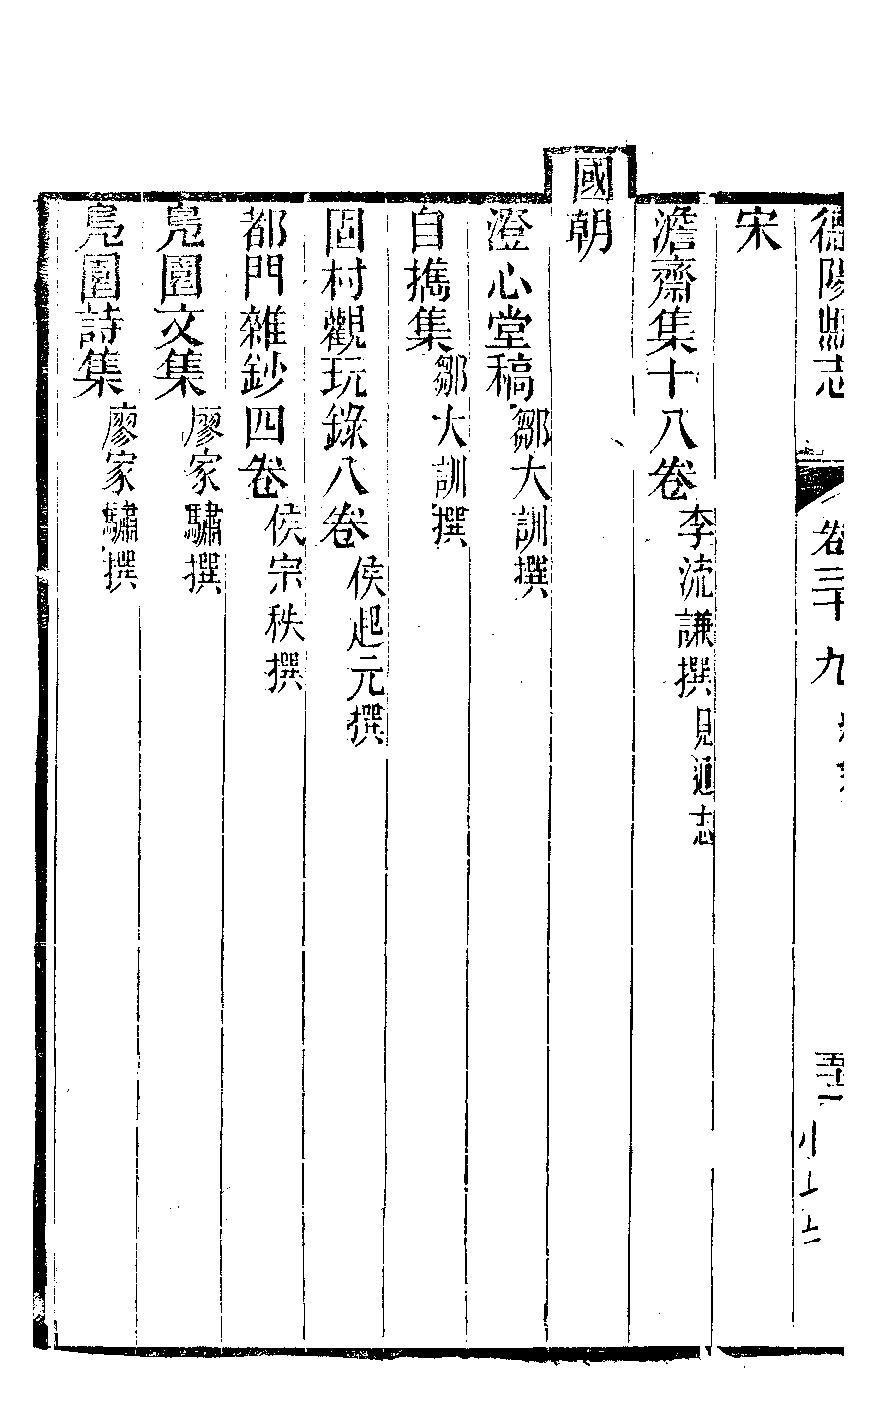 德陽縣志 卷三十九
宋
澹齋集十八卷 李流謙撰 見通志
國朝
澄心堂稿 鄒大訓撰
自擕集 鄒大訓撰
固村觀玩錄八卷 侯起元撰
都門雜鈔四卷 侯宗秩撰
鳧園文集 廖家驌撰
鳧園詩集 廖家驌撰